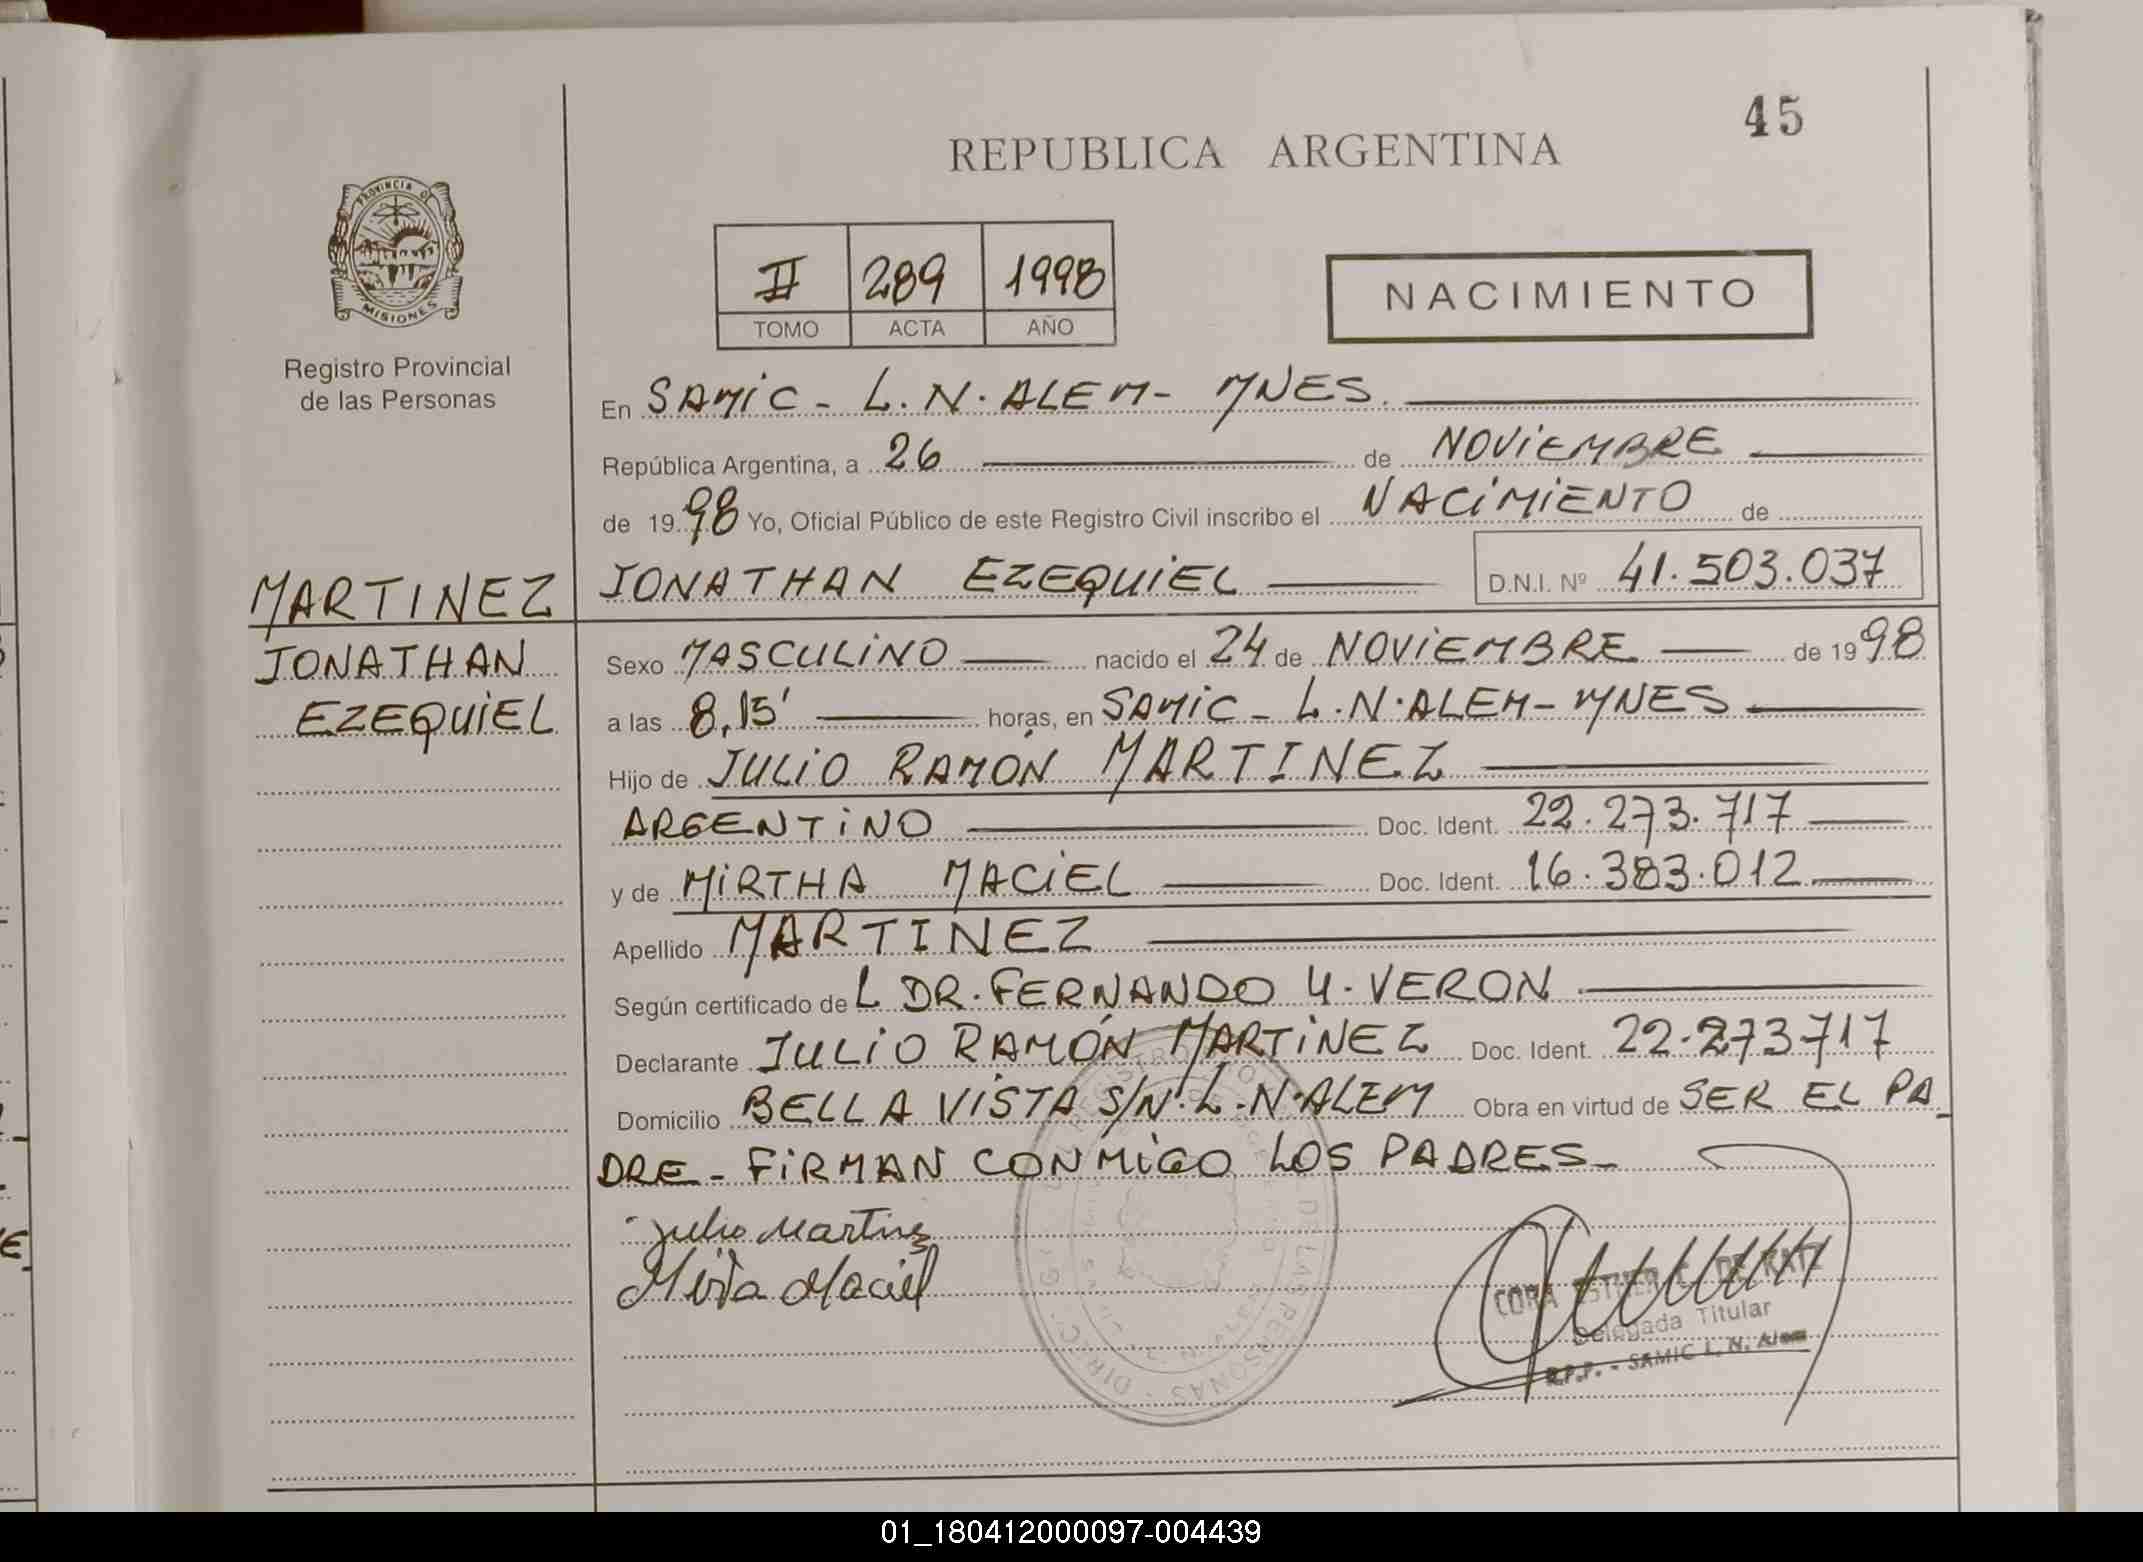 45
REPUBLICA ARGENTINA
PROVINCIA DE
MISIONES
Registro Provincial
de las Personas
II 289 1998
TOMO ACTA AÑO
NACIMIENTO
En SAMIC - L.N. ALEM - MNES.
República Argentina, a 26 de NOVIEMBRE
de 1998 Yo, Oficial Público de este Registro Civil inscribo el NACIMIENTO de
MARTINEZ
JONATHAN
EZEQUIEL
JONATHAN EZEQUIEL D.N.I. Nº 41.503.037
Sexo MASCULINO nacido el 24 de NOVIEMBRE de 1998
a las 8,15' horas, en SAMIC - L.N. ALEM - MNES
Hijo de JULIO RAMÓN MARTINEZ
ARGENTINO Doc. Ident. 22.273.717
y de MIRTHA MACIEL Doc. Ident. 16.383.012
Apellido MARTINEZ
Según certificado de L DR. FERNANDO M. VERON
Declarante JULIO RAMÓN MARTINEZ Doc. Ident. 22.273717
Domicilio BELLA VISTA S/Nº. L.N. ALEM Obra en virtud de SER EL PA_
DRE - FIRMAN CONMIGO LOS PADRES -
Julio Martinez
Mirta Maciel
CORA ESTHER DE KATZ
Delegada Titular
R.P.P. - SAMIC L. N. Alem
DE LAS PERSONAS
01_180412000097-004439